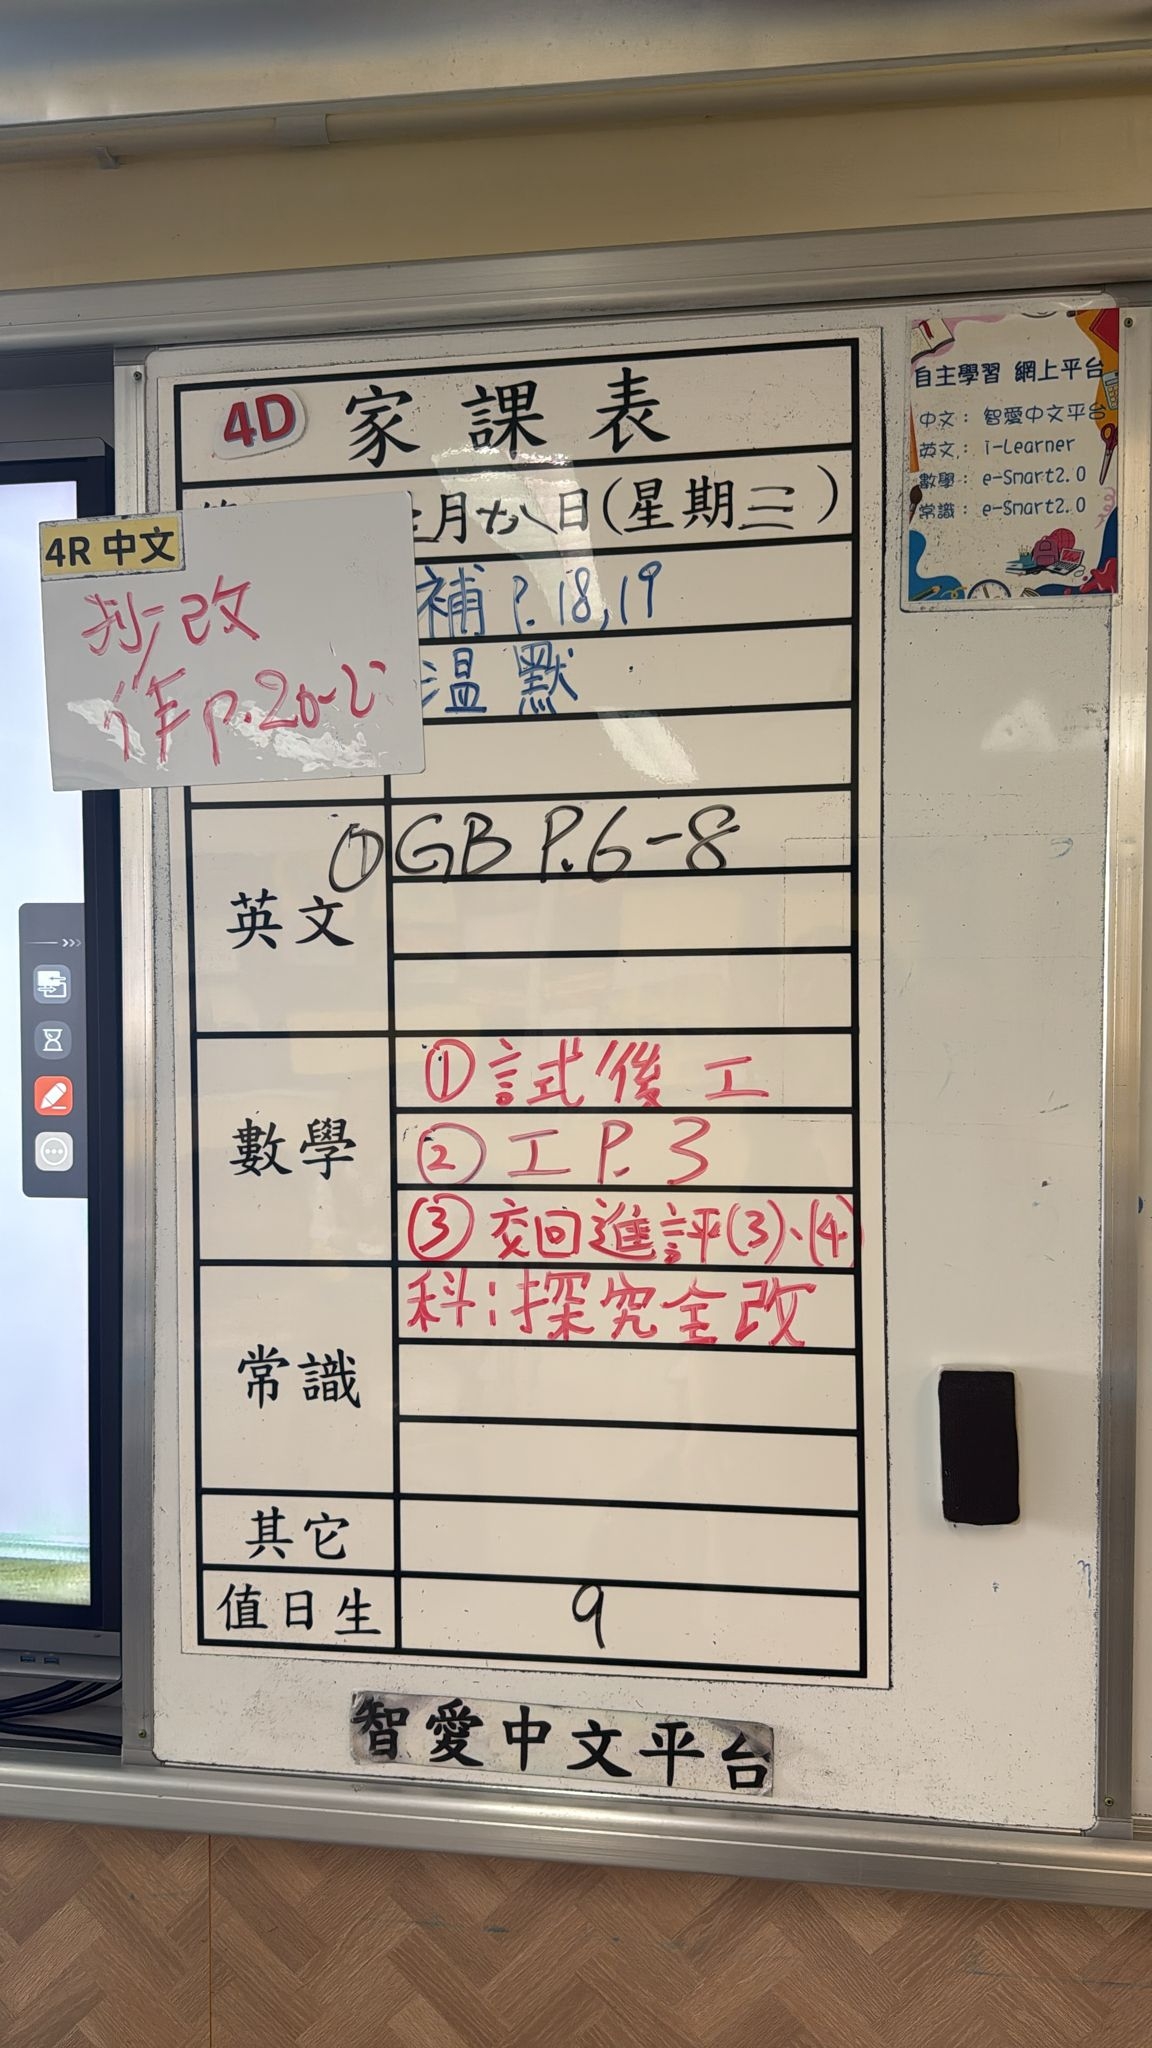 4D 家課表
月十八日(星期三)
4R 中文
抄改
作 p.20-
補 P.18,19
温默
英文
① GB P.6-8
數學
① 試後工
② 工 P.3
③ 交回進評(3)、(4)
常識
科:探究全改
其它
值日生
9
智愛中文平台
自主學習 網上平台
中文: 智愛中文平台
英文: i-Learner
數學: e-Smart2.0
常識: e-Smart2.0